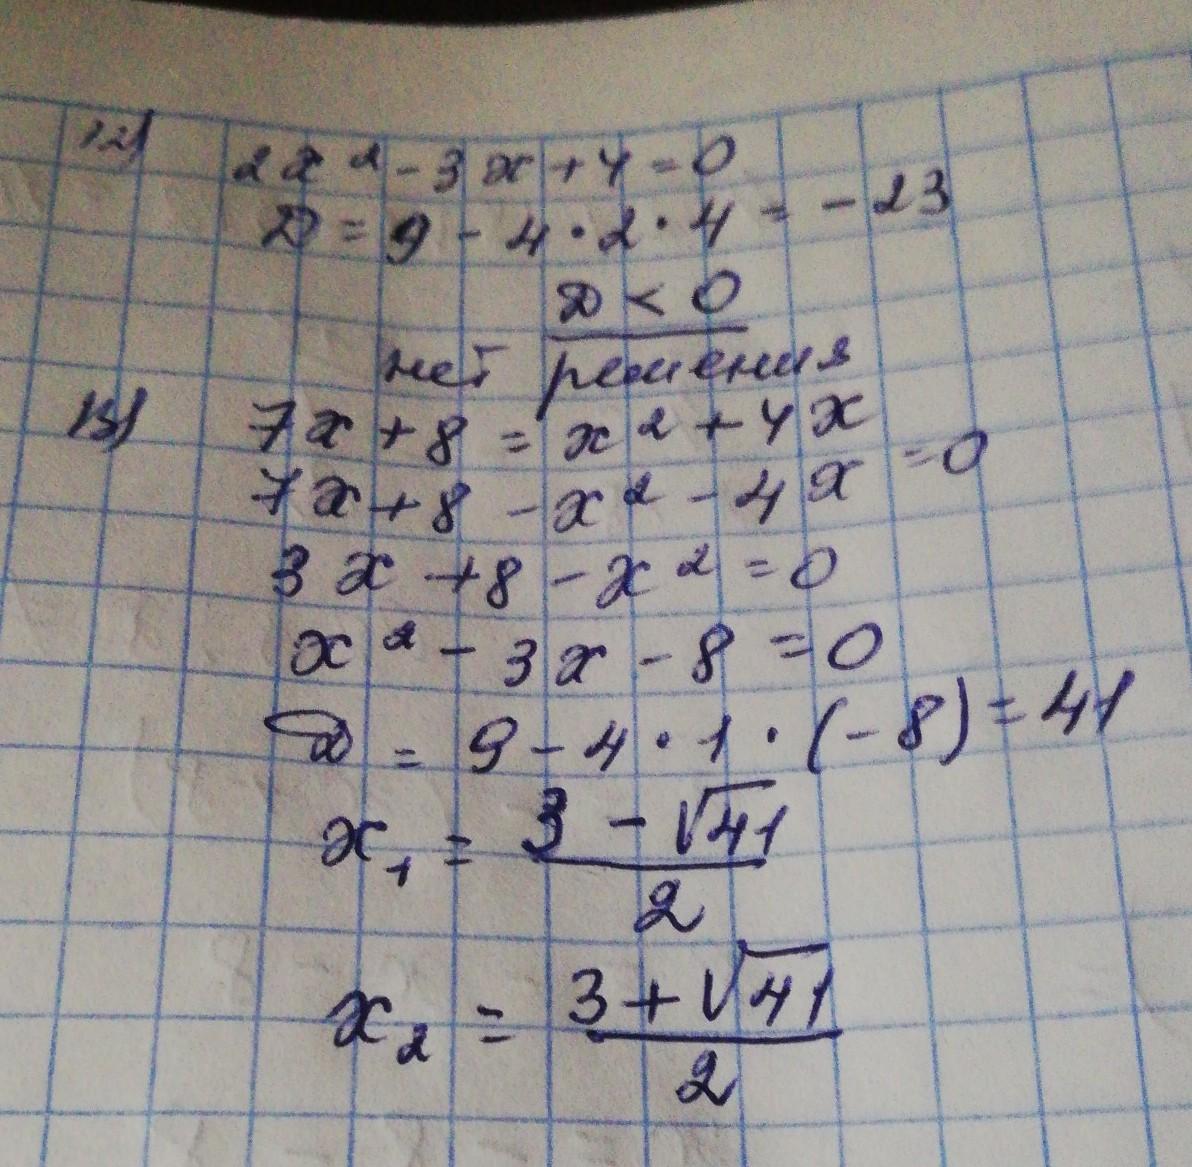 12) 2x² - 3x + 4 = 0
D = 9 - 4 · 2 · 4 = - 23
D < 0
нет решения
13) 7x + 8 = x² + 4x
7x + 8 - x² - 4x = 0
3x + 8 - x² = 0
x² - 3x - 8 = 0
D = 9 - 4 · 1 · (-8) = 41
x₁ = (3 - √41)/2
x₂ = (3 + √41)/2